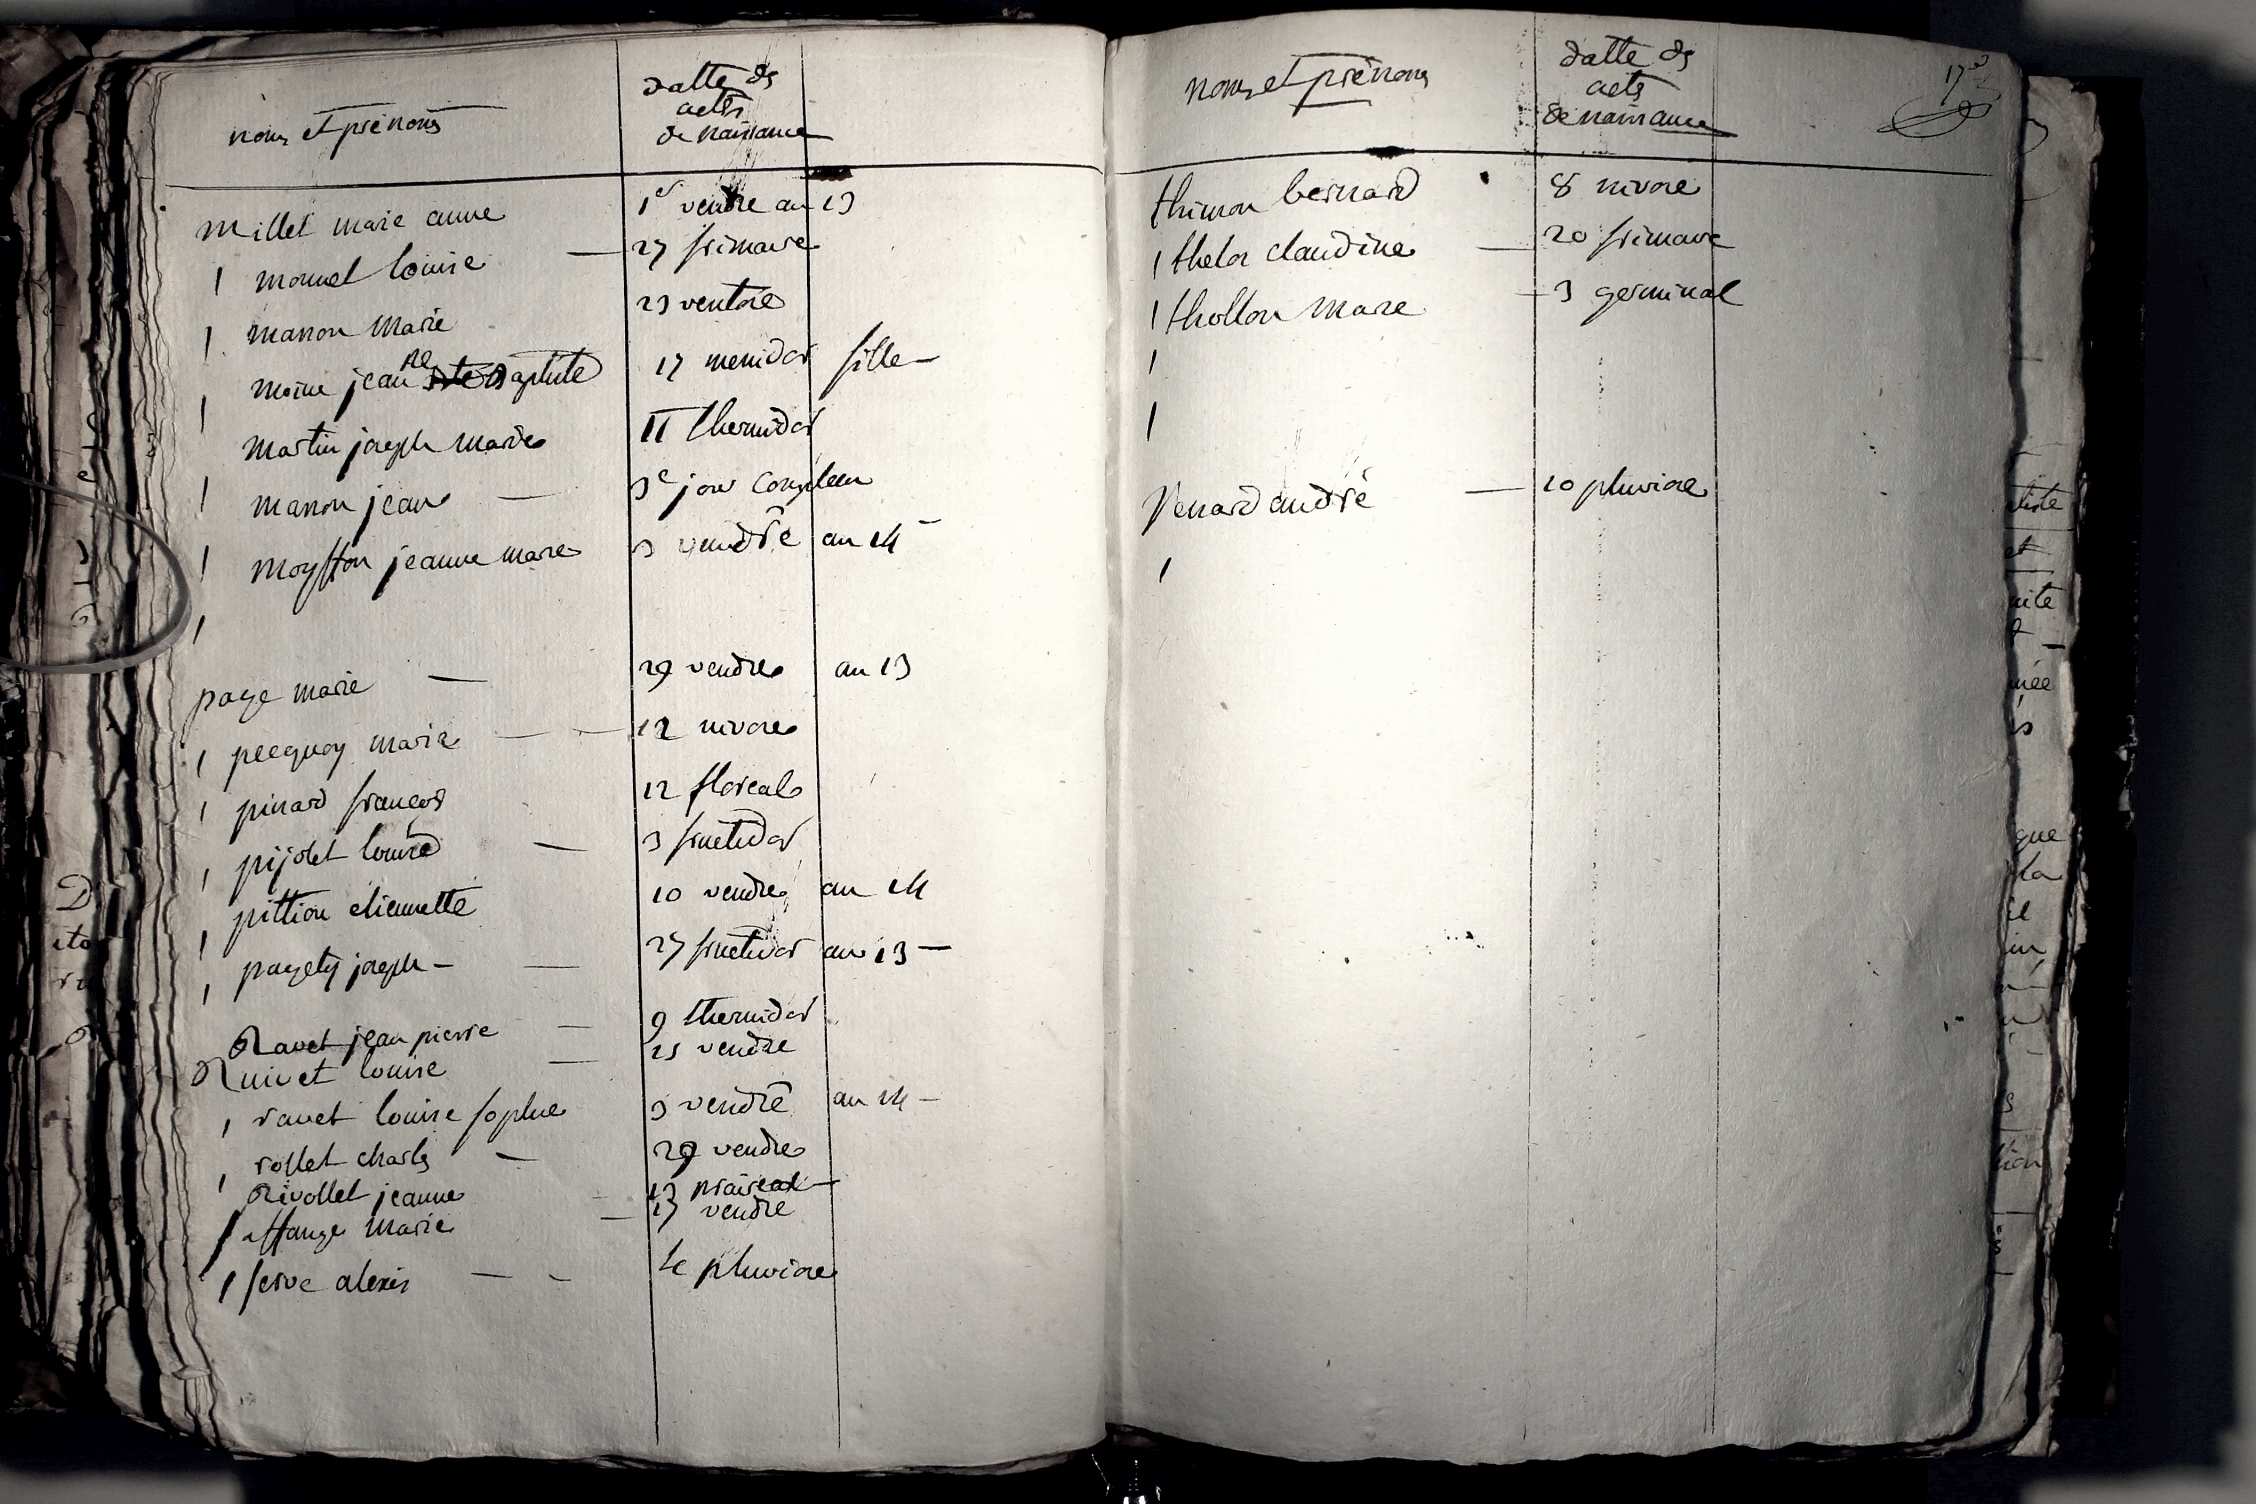 noms et prénoms
datte ds
actes
de naissance
Millet marie anne 1er vendre an 13
monnet louise 27 frimaire
manon marie 23 ventose
moine jeanne Baptiste 17 mesidor fille
martin joseph marie 11 thermidor
manon jean 3e jour complem
moyston jeanne marie 3 vendre an 14
page marie 29 vendre an 13
pecquoy marie 12 nivose
pinard françois 12 floreal
pijolet louise 3 fructidor
pittion etiennette 10 vendre an 14
pagety joseph 27 fructidor an 13
Ravet jean pierre 9 thermidor
Ruivet louise 25 vendre
ravet louise sophie 3 vendre an 14
rollet charls 29 vendre
Rivollet jeanne 13 prairial
affange marie 17 vendre
serve alexis 4e pluviose
noms et prénoms
datte ds
acts
de naissance
thimon bernard 8 nivose
thelon claudine 20 frimaire
thollon marie 3 germinal
Venard andré 10 pluviose